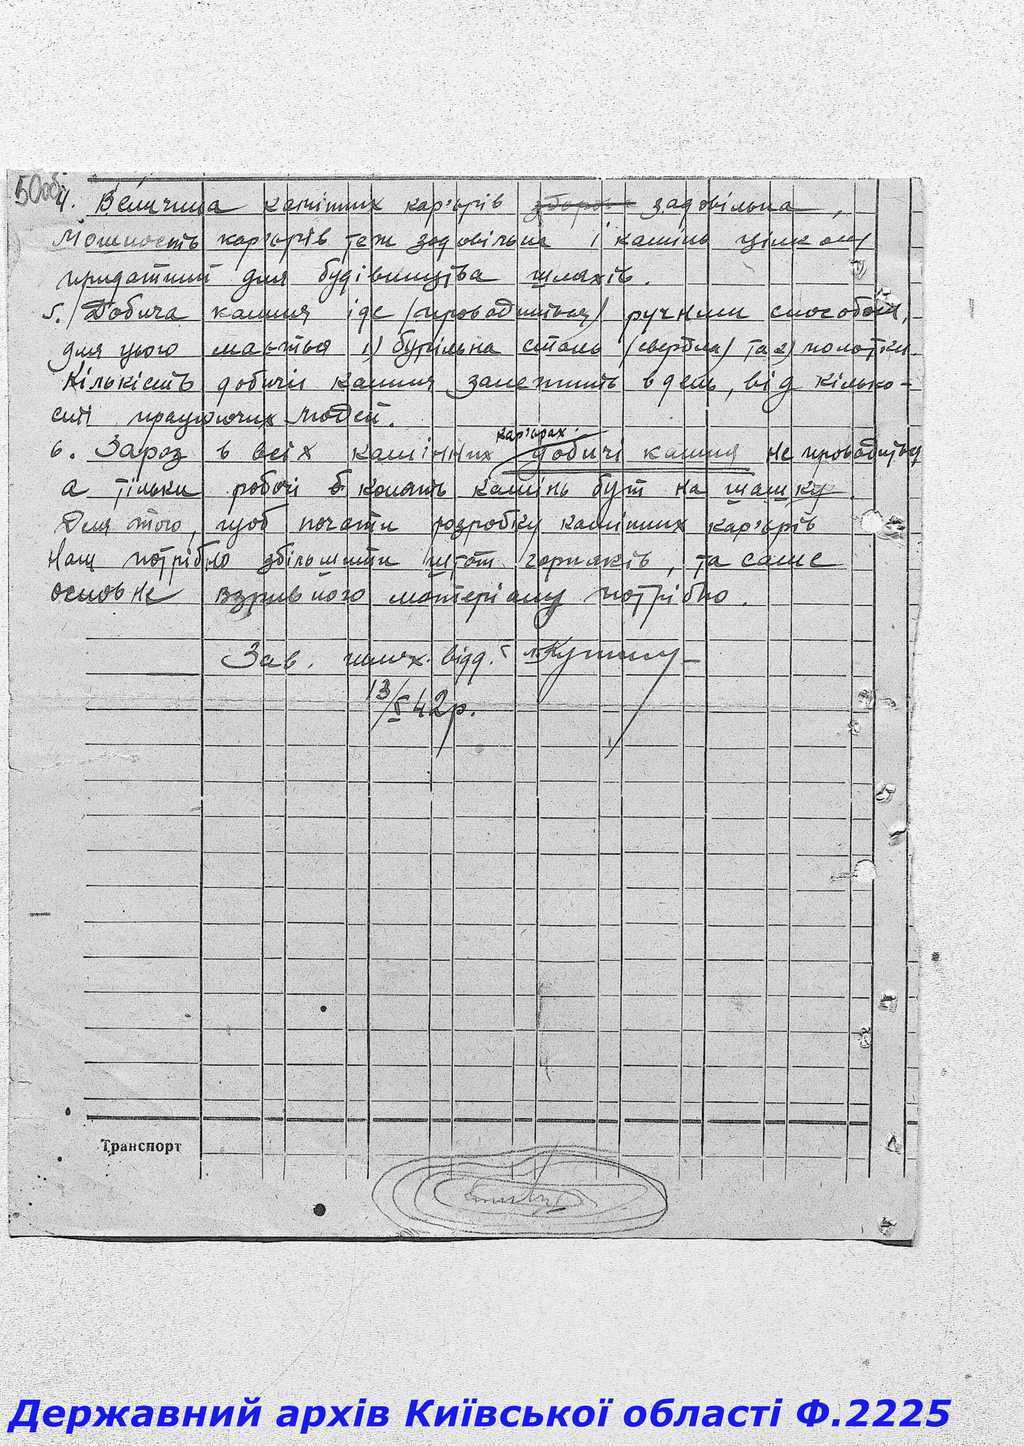 50об
4. Величина камінних кар'єрів задовільна,
Мощность кар'єрів теж задовільна і камінь цілком
придатний для будівництва шляхів.
5. Добича каміня іде (проводиться) ручним способом,
для цього мається 1) бурільна сталь (сверблa) та 2) молотки.
Кількість добичи каміня залежить в день, від кілько-
сти працюючих людей.
кар'єрах
6. Зараз в всіх камінних добичі каміня не проводиться
а тільки робочі колять камінь бут на шашку.
Для того, щоб почати розробку камінних кар'єрів
нам потрібно збільшити штат горняків, та саме
основне взривного матеріалу потрібно.
Зав. шлях. відд.
13/V 42р.
Транспорт
Державний архів Київської області Ф.2225